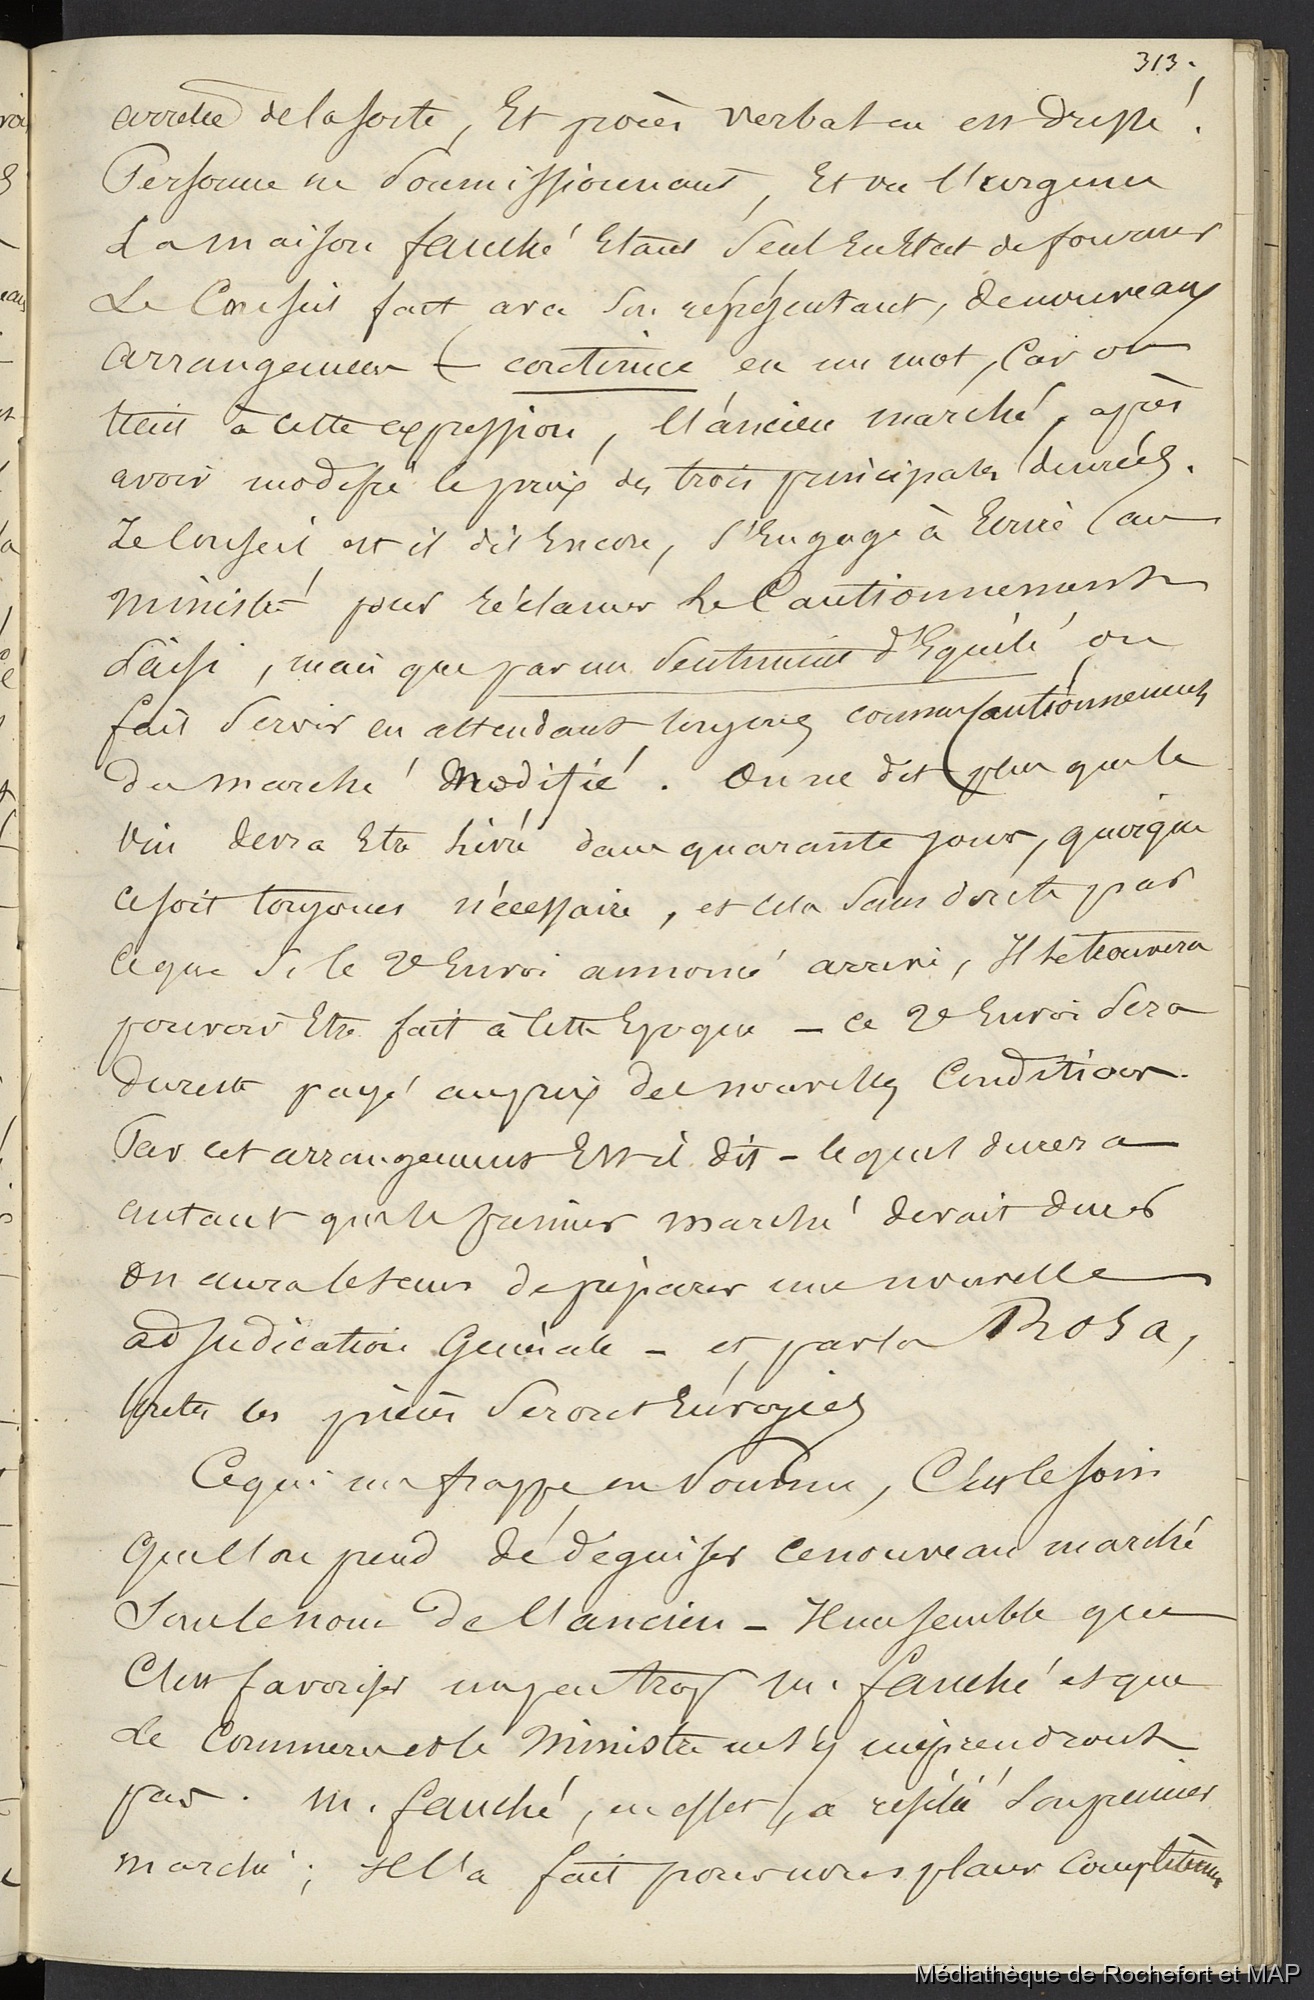 313.
arretée de la sorte, Et procès verbal en est dressé.
Personne ne Soumissionnant, Et vu l'urgence
La maison fauché Etant Seul En Etat de fournir
Le Conseil fait avec Son représentant, de nouveaux
arrangemens ( continue en un mot, Car on
tient à cette expression, l'ancien marché, après
avoir modifié le prix des trois principales denrées.
Le Conseil est il dit Encore, S'Engage à Ecrire au
ministre pour réclamer Le Cautionnement
saisi, mais que par un Sentiment d'Equité on
fait Servir en attendant toujours comme Cautionnement
du marché modifié. On ne dit plus que le
vin devra Etre livré dans quarante jours, quoique
ce soit toujours nécessaire, et cela Sans doute par
ce que Si le 2e Envoi annoncé arrive, Il se trouvera
pouvoir Etre fait à cette Epoque - ce 2e Envoi Sera
du reste payé au prix des nouvelles Conditions.
Par cet arrangement Est il dit - lequel durera
autant que le premier marché devait durer
on aura le tems de préparer une nouvelle
adjudication Générale - et par la Rosa,
toutes les pièces Seront Envoyées
Ce qui me frappe en Somme, C'est le soin
que l'on prend de déguiser ce nouveau marché
Sous le nom de l'ancien - Il me semble que
C'est favoriser un peu trop M. fauché et que
Le Commerce et le Ministre ne s'y méprendront
pas. M. fauché, en effet, a résilié Son premier
marché; Il l'a fait pour nous placer Complètement
Médiathèque de Rochefort et MAP